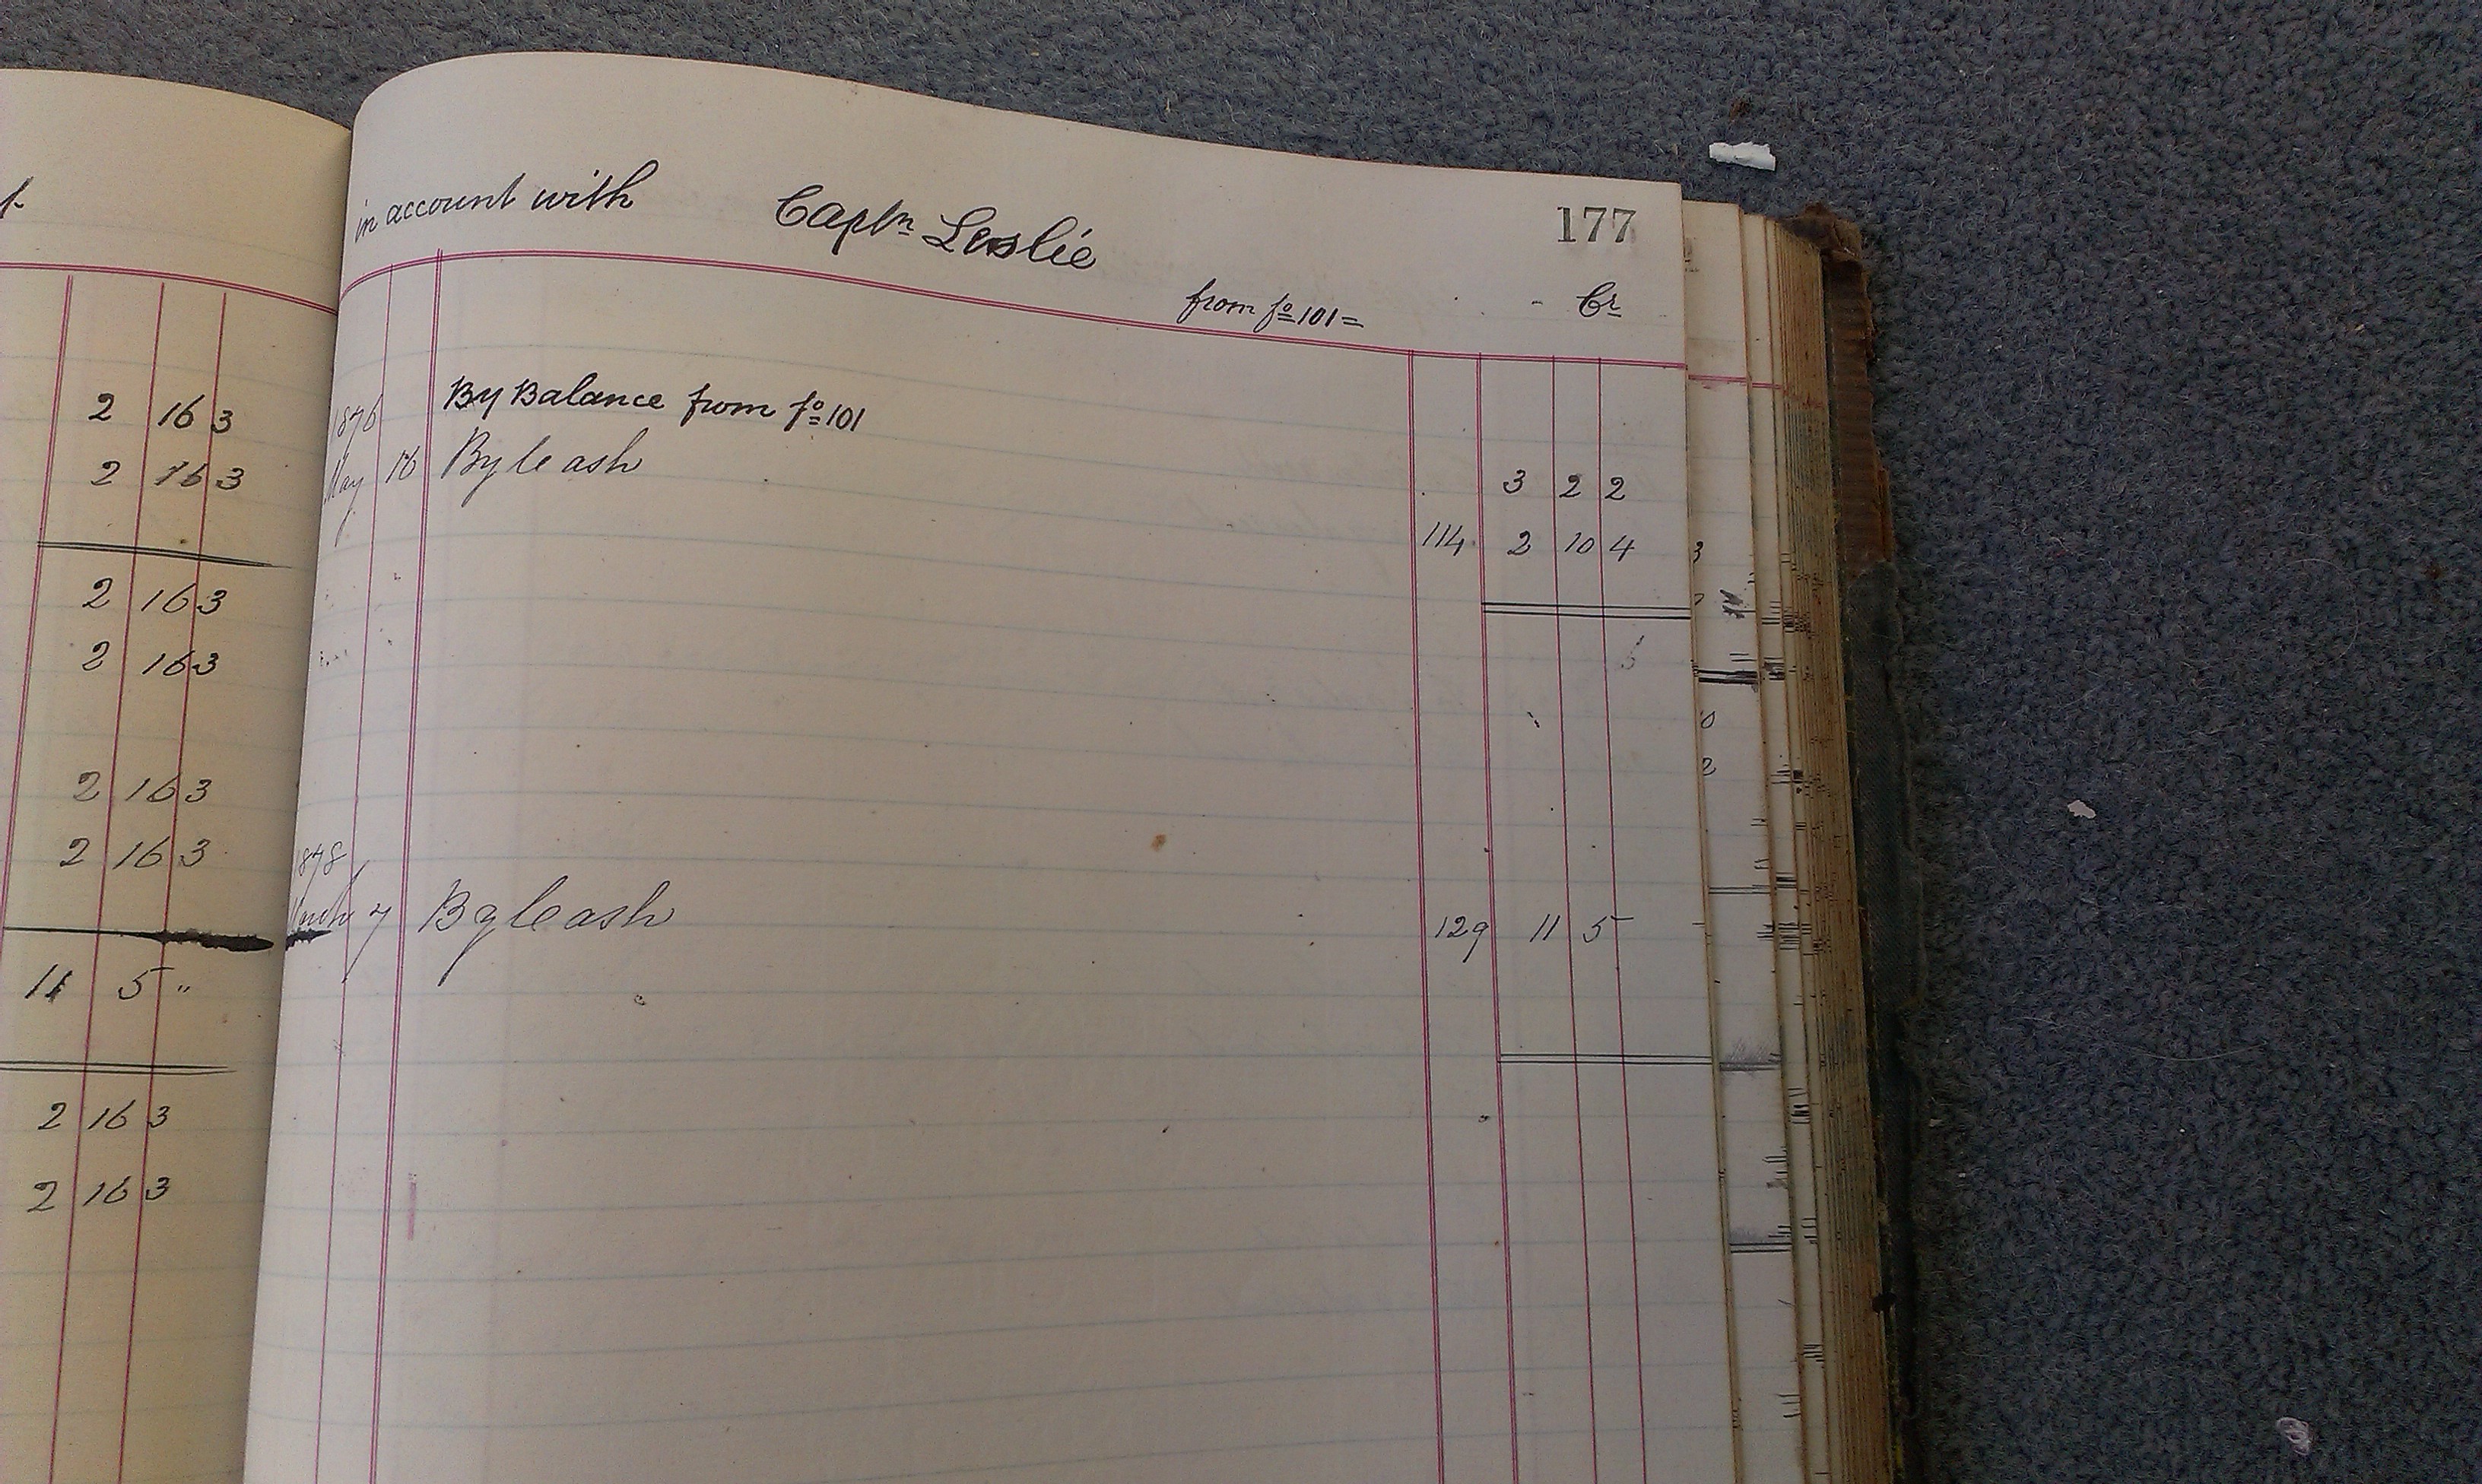 2 16 3
2 16 3
2 16 3
2 16 3
2 16 3
2 16 3
11 5 "
2 16 3
2 16 3
in account with Captn Leslie 177
from fo 101 = Cr
1876 By Balance from fo 101
May 16 By Cash
3 2 2
114 2 10 4
1878
March 7 By Cash 129 11 5